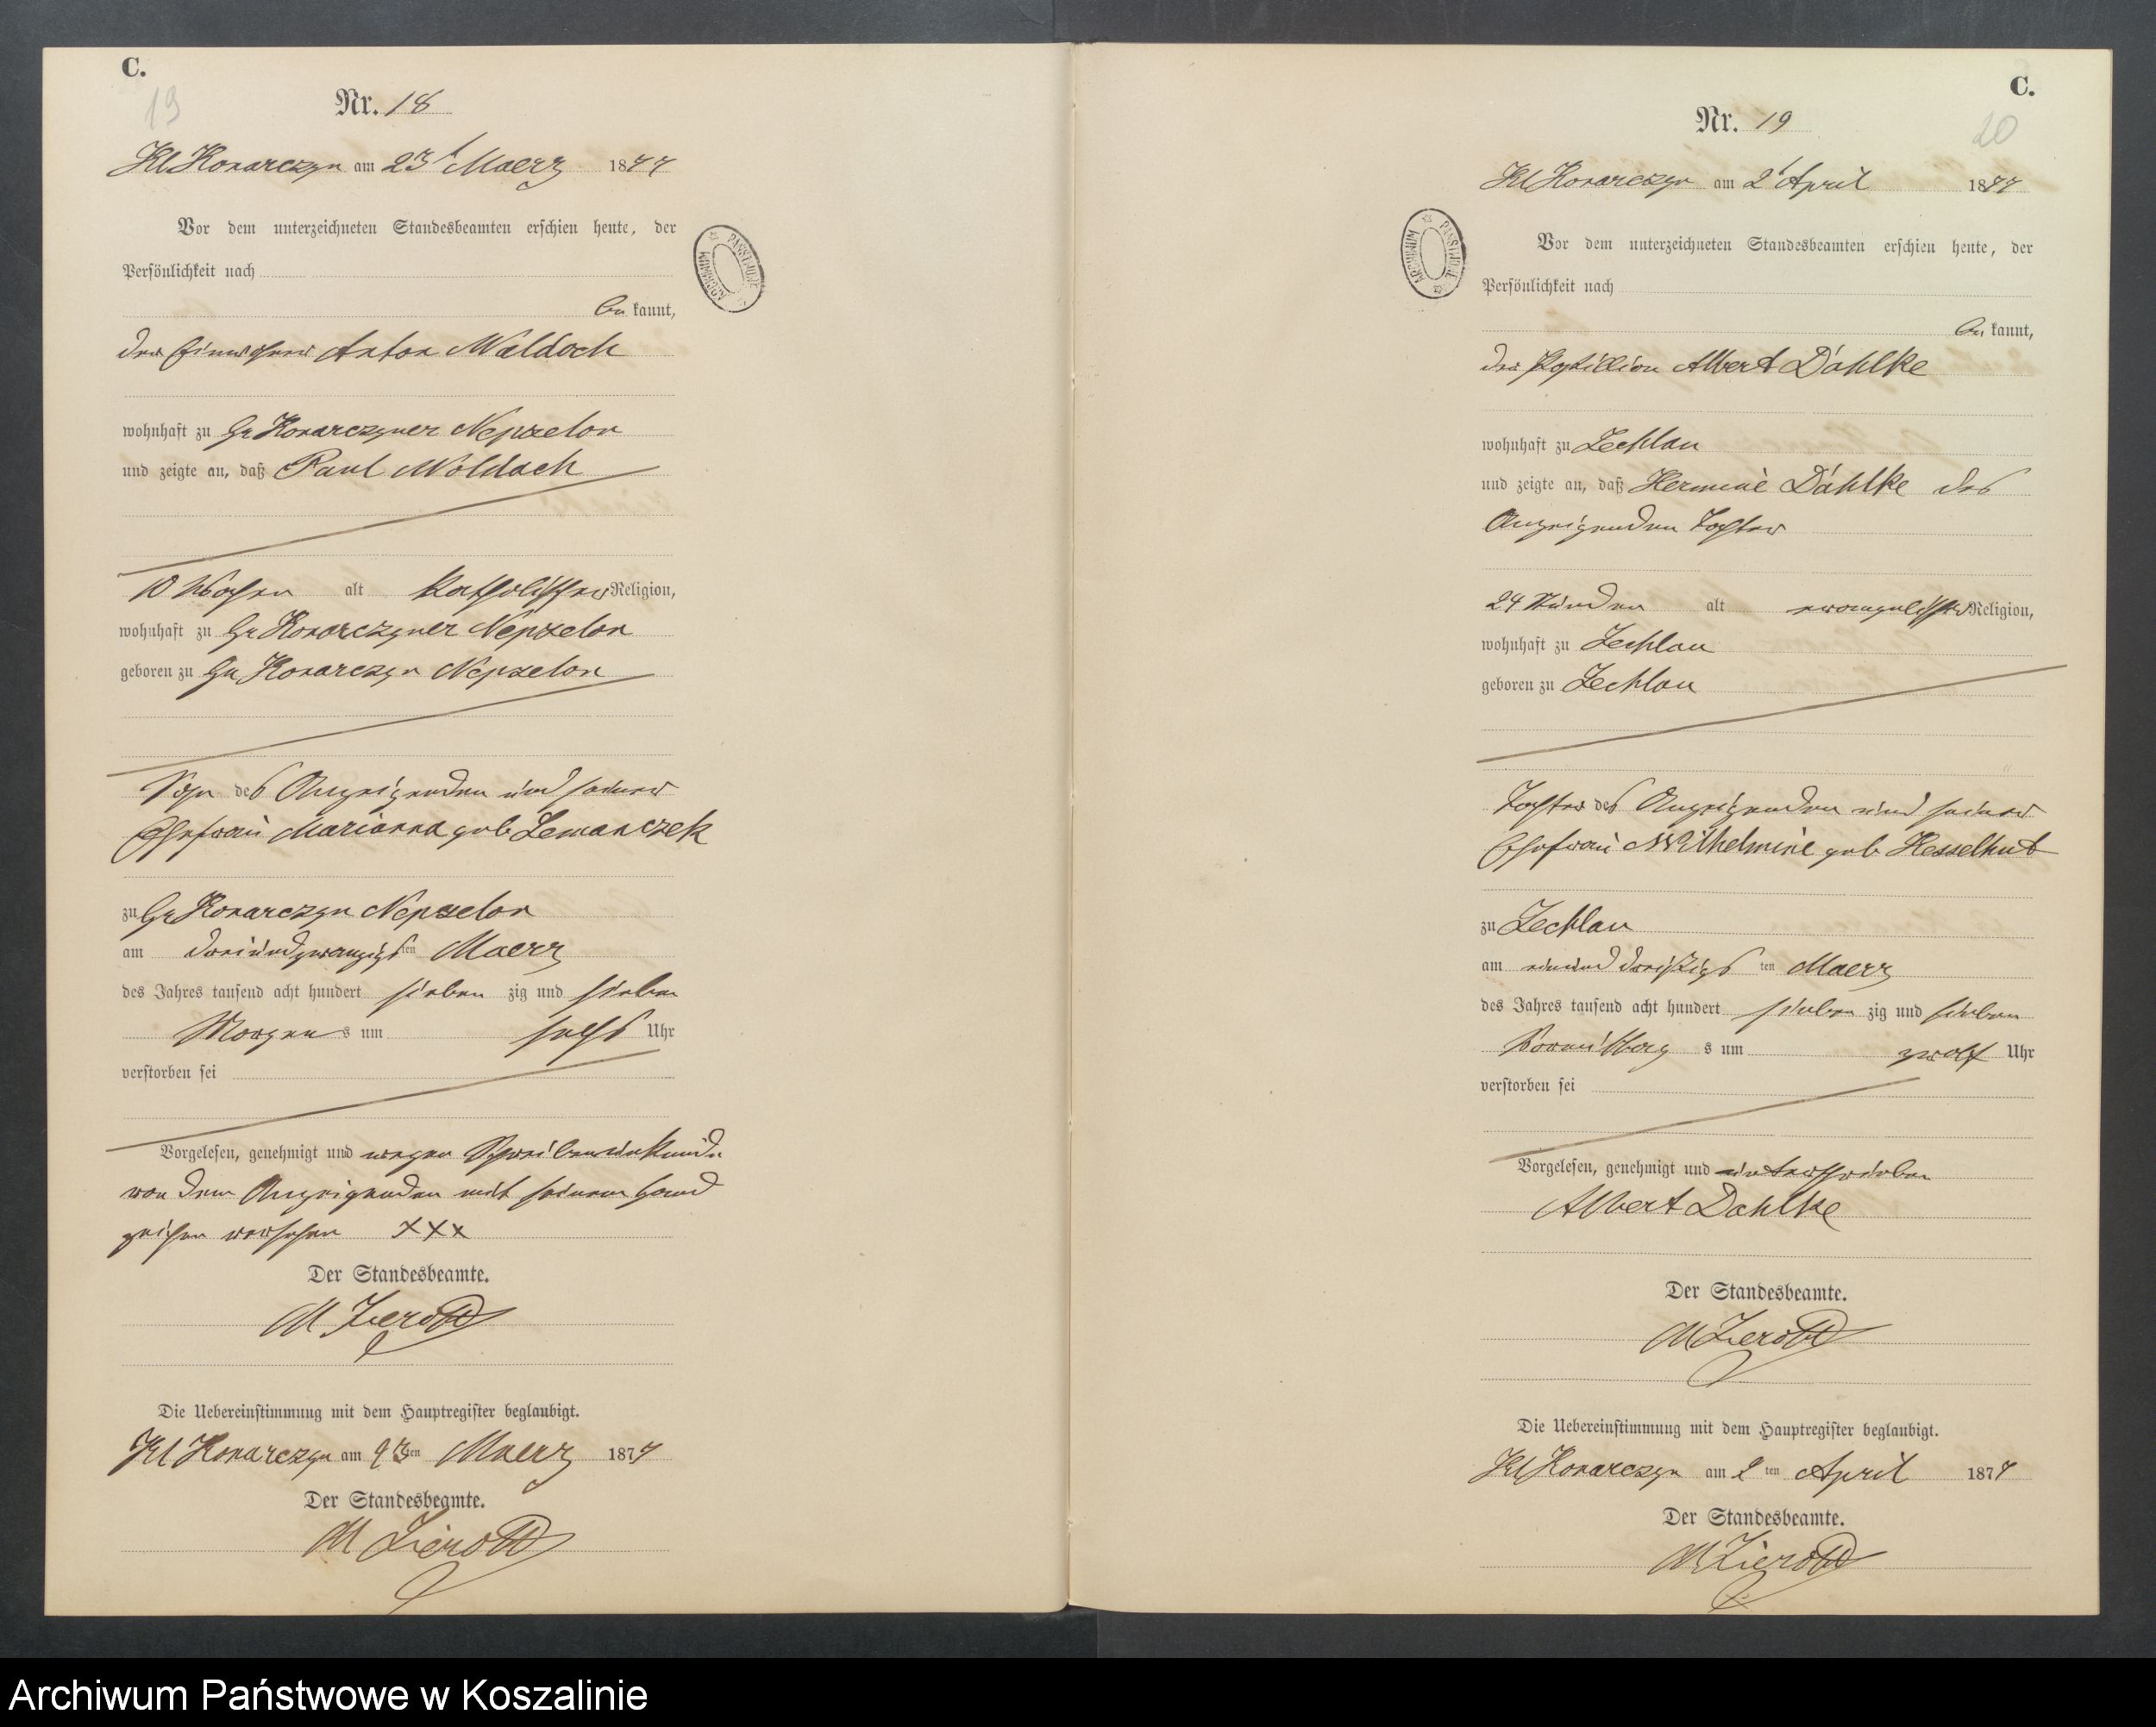 C.
19
Nr. 18
Kl Konarczyn am 23t Maerz 1877
Vor dem unterzeichneten Standesbeamten erschien heute, der
Persönlichkeit nach
be kannt,
der Einwohner Anton Waldoch
wohnhaft zu Gr Konarczyner Nepzelon
und zeigte an, daß Paul Woldach
10 Wochen alt katholischer Religion,
wohnhaft zu Gr Konarczyner Nepzelon
geboren zu Gr Konarczyn Nepzelon
Sohn des Anzeigenden und seiner
Ehefrau Marianna geb Lemanczek
zu Gr Konarczyn Nepzelon
am dreiundzwanzigsten Maerz
des Jahres tausend acht hundert sieben zig und sieben
Morgens um sechs Uhr
verstorben sei
Vorgelesen, genehmigt und wegen Schreibensunkunde
von dem Anzeigenden mit seinem Hand
zeichen versehen XXX
Der Standesbeamte.
M Zierott
Die Uebereinstimmung mit dem Hauptregister beglaubigt.
Kl Konarczyn am 23ten Maerz 1877
Der Standesbeamte.
M Zierott
C.
20
Nr. 19
Kl Konarczyn am 2t April 1877
Vor dem unterzeichneten Standesbeamten erschien heute, der
Persönlichkeit nach
be kannt,
der Postillion Albert Dahlke
wohnhaft zu Zechlau
und zeigte an, daß Hermine Dahlke des
Anzeigenden Tochter
24 Stunden alt evangelischer Religion,
wohnhaft zu Zechlau
geboren zu Zechlau
Tochter des Anzeigenden und seiner
Ehefrau Wilhelmine geb Hesselhut
zu Zechlau
am einunddreißigsten Maerz
des Jahres tausend acht hundert sieben zig und sieben
Vormittags um zwölf Uhr
verstorben sei
Vorgelesen, genehmigt und unterschrieben
Albert Dahlke
Der Standesbeamte.
M Zierott
Die Uebereinstimmung mit dem Hauptregister beglaubigt.
Kl Konarczyn am 2ten April 1877
Der Standesbeamte.
M Zierott
ARCHIWUM PAŃSTWOWE
ARCHIWUM PAŃSTWOWE
Archiwum Państwowe w Koszalinie